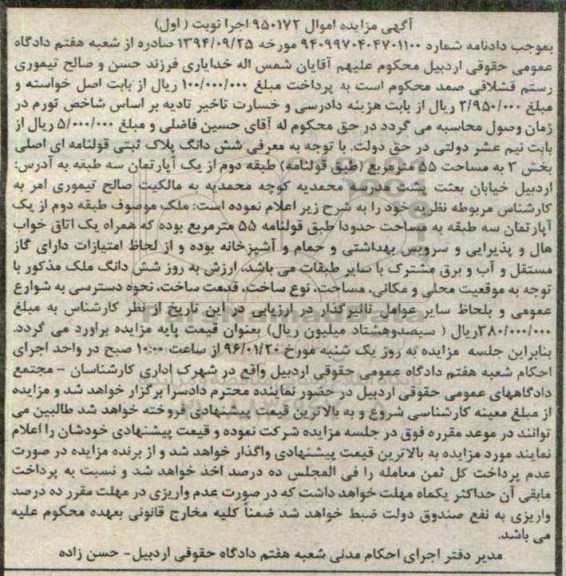 آگهی مزایده اموال ۹۵۰۱۷۲ اجرا نوبت (اول)
بموجب دادنامه شماره ۹۴۰۹۹۷۰۴۰۴۷۰۱۱۰۰ مورخه ۱۳۹۴/۰۹/۲۵ صادره از شعبه هفتم دادگاه
عمومی حقوقی اردبیل محکوم علیهم آقایان شمس اله خدایاری فرزند حسن و صالح تیموری
رستم قشلاقی صمد محکوم است به پرداخت مبلغ ۱۰۰/۰۰۰/۰۰۰ ریال از بابت اصل خواسته و
مبلغ ۳/۹۵۰/۰۰۰ ریال از بابت هزینه دادرسی و خسارت تاخیر تادیه بر اساس شاخص تورم در
زمان وصول محاسبه می گردد در حق محکوم له آقای حسین فاضلی و مبلغ ۵/۰۰۰/۰۰۰ ریال از
بابت نیم عشر دولتی در حق دولت. با توجه به معرفی شش دانگ پلاک ثبتی قولنامه ای اصلی
بخش ۳ به مساحت ۵۵ مترمربع (طبق قولنامه) طبقه دوم از یک آپارتمان سه طبقه به آدرس:
اردبیل خیابان بعثت پشت مدرسه محمدیه کوچه محمدیه به مالکیت صالح تیموری امر به
کارشناس مربوطه نظریه خود را به شرح زیر اعلام نموده است: ملک موصوف طبقه دوم از یک
آپارتمان سه طبقه به مساحت حدودا طبق قولنامه ۵۵ مترمربع بوده که همراه یک اتاق خواب
هال و پذیرایی و سرویس بهداشتی و حمام و آشپزخانه بوده و از لحاظ امتیازات دارای گاز
مستقل و آب و برق مشترک با سایر طبقات می باشد، ارزش به روز شش دانگ ملک مذکور با
توجه به موقعیت محلی و مکانی، مساحت، نوع ساخت، قدمت ساخت، نحوه دسترسی به شوارع
عمومی و بلحاظ سایر عوامل تاثیرگذار در ارزیابی در این تاریخ از نظر کارشناس به مبلغ
۳۸۰/۰۰۰/۰۰۰ریال ( سیصدوهشتاد میلیون ریال) بعنوان قیمت پایه مزایده براورد می گردد.
بنابراین جلسه مزایده به روز یک شنبه مورخ ۹۶/۰۱/۲۰ از ساعت ۱۰:۰۰ صبح در واحد اجرای
احکام شعبه هفتم دادگاه عمومی حقوقی اردبیل واقع در شهرک اداری کارشناسان - مجتمع
دادگاههای عمومی حقوقی اردبیل در حضور نماینده محترم دادسرا برگزار خواهد شد و مزایده
از مبلغ معینه کارشناسی شروع و به بالاترین قیمت پیشنهادی فروخته خواهد شد طالبین می
توانند در موعد مقرره فوق در جلسه مزایده شرکت نموده و قیمت پیشنهادی خودشان را اعلام
نمایند مورد مزایده به بالاترین قیمت پیشنهادی واگذار خواهد شد و از برنده مزایده در صورت
عدم پرداخت کل ثمن معامله را فی المجلس ده درصد اخذ خواهد شد و نسبت به پرداخت
مابقی آن حداکثر یکماه مهلت خواهد داشت که در صورت عدم واریزی در مهلت مقرر ده درصد
واریزی به نفع صندوق دولت ضبط خواهد شد ضمناً کلیه مخارج قانونی بعهده محکوم علیه
می باشد.
مدیر دفتر اجرای احکام مدنی شعبه هفتم دادگاه حقوقی اردبیل- حسن زاده